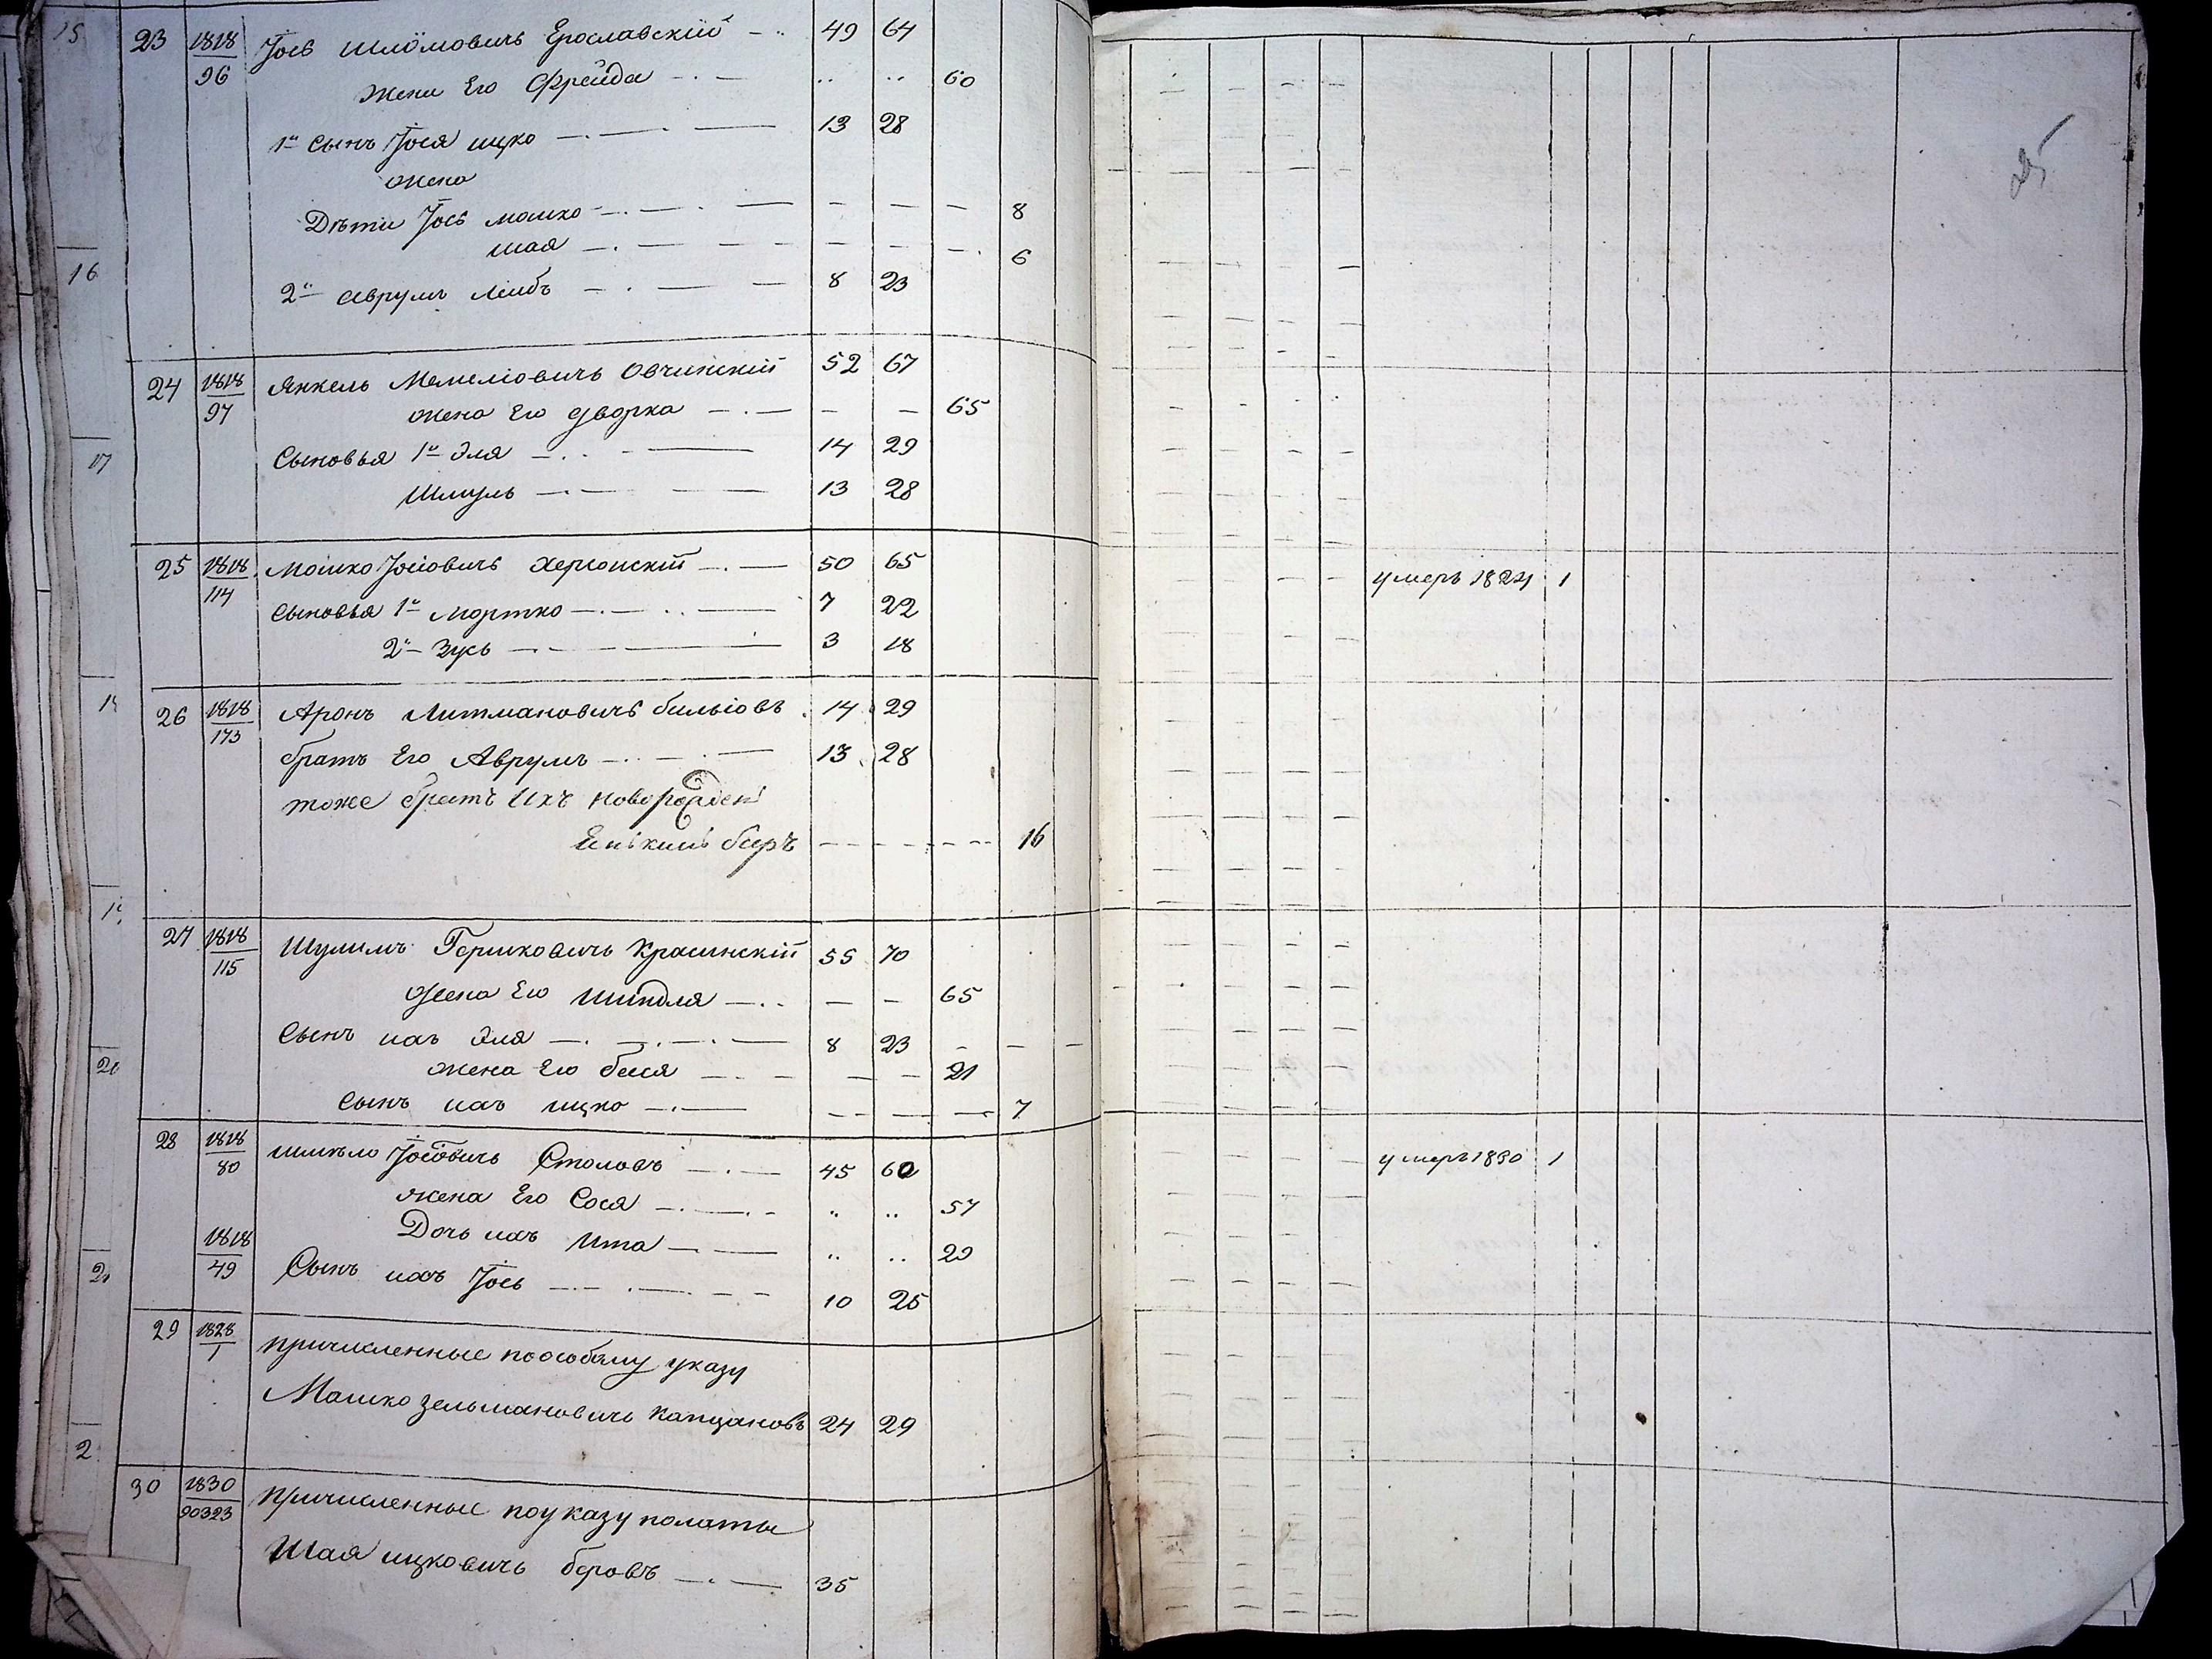 23 1818/96 Іось Шлёмовичъ Ерославскій 49 64
жена Его Фрейда 60
1й Сынъ Іося ицко 13 28
жена
Дѣти Іось мошко 8
шая 6
2й Аврумъ Лейбъ 8 23
24 1818/97 Янкель Мемеліовичъ Овчинскій 52 67
жена Его дворка 65
Сыновья 1й Эля 14 29
Шмуль 13 28
25 1818/114 Мошко Іосіовичъ Херсонскій 50 65 умеръ 1824 1
Сыновья 1й Мортко 7 22
2й Зусь 3 18
26 1818/173 Аронъ Литмановичъ бильіовъ 14 29
братъ Его Аврумъ 13 28
тоже братъ Ихъ
беръ 16
27 1818/115 Шулимъ Гершковичъ Красинскій 55 70
Жена Его Шиндля 65
Сынъ ихъ Эля 8 23
жена Его бася 21
Сынъ ихъ ицко 7
28 1818/80 Шмѣло Іосіовичъ Столовъ 45 60 умеръ 1830 1
жена Его Сося 57
Дочь ихъ Ита 20
1818/49 Сынъ ихъ Іось 10 25
29 1828/1 причисленные по особому указу
Мошко зельмановичъ Капцановъ 24 29
30 1830/90323 Причисленные по указу полаты
Шая ицковичъ беровъ 35
25
15
16
17